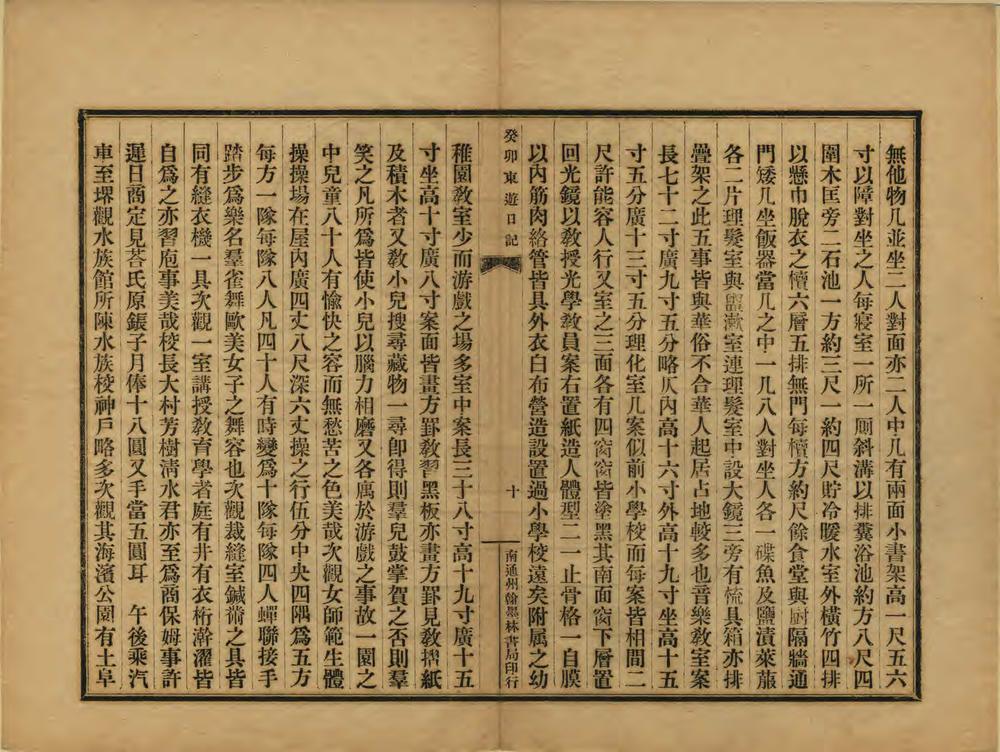 無他物几並坐二人對面亦二人中几有兩面小書架高一尺五六
寸以障對坐之人每寢室一所一廁斜溝以排糞浴池約方八尺四
圍木匡旁二石池一方約三尺一約四尺貯冷暖水室外橫竹四排
以懸巾脫衣之櫝六層五排無門每櫝方約尺餘食堂與廚隔牆通
門矮几坐飯器當几之中一几八人對坐人各一碟魚及鹽漬萊菔
各二片理髮室與盥漱室連理髮室中設大鏡三旁有梳具箱亦排
疊架之此五事皆與華俗不合華人起居占地較多也音樂教室案
長七十二寸廣九寸五分略仄內高十六寸外高十九寸坐高十五
寸五分廣十三寸五分理化室几案似前小學校而每案皆相間二
尺許能容人行又室之三面各有四窗窗皆塗黑其南面窗下層置
回光鏡以教授光學教員案右置紙造人體型二一止骨格一自膜
以內筋肉絡管皆具外衣白布營造設置過小學校遠矣附属之幼
癸卯東遊日記
十
南通州翰墨林書局印行
稚園教室少而游戲之場多室中案長三十八寸高十九寸廣十五
寸坐高十寸廣八寸案面皆畫方罫教習黑板亦畫方罫見教摺紙
及積木者又教小兒搜尋藏物一尋卽得則羣兒鼓掌賀之否則羣
笑之凡所爲皆使小兒以腦力相磨又各厲於游戲之事故一園之
中兒童八十人有愉快之容而無愁苦之色美哉次觀女師範生體
操操場在屋內廣四丈八尺深六丈操之行伍分中央四隅爲五方
每方一隊每隊八人凡四十人有時變爲十隊每隊四人蟬聯接手
踏步爲樂名羣雀舞歐美女子之舞容也次觀裁縫室鍼黹之具皆
同有縫衣機一具次觀一室講授教育學者庭有井有衣桁澣濯皆
自爲之亦習庖事美哉校長大村芳樹淸水君亦至爲商保姆事許
遲日商定見荅氏原鋹子月俸十八圓又手當五圓耳　午後乘汽
車至堺觀水族館所陳水族校神戶略多次觀其海濱公園有土阜